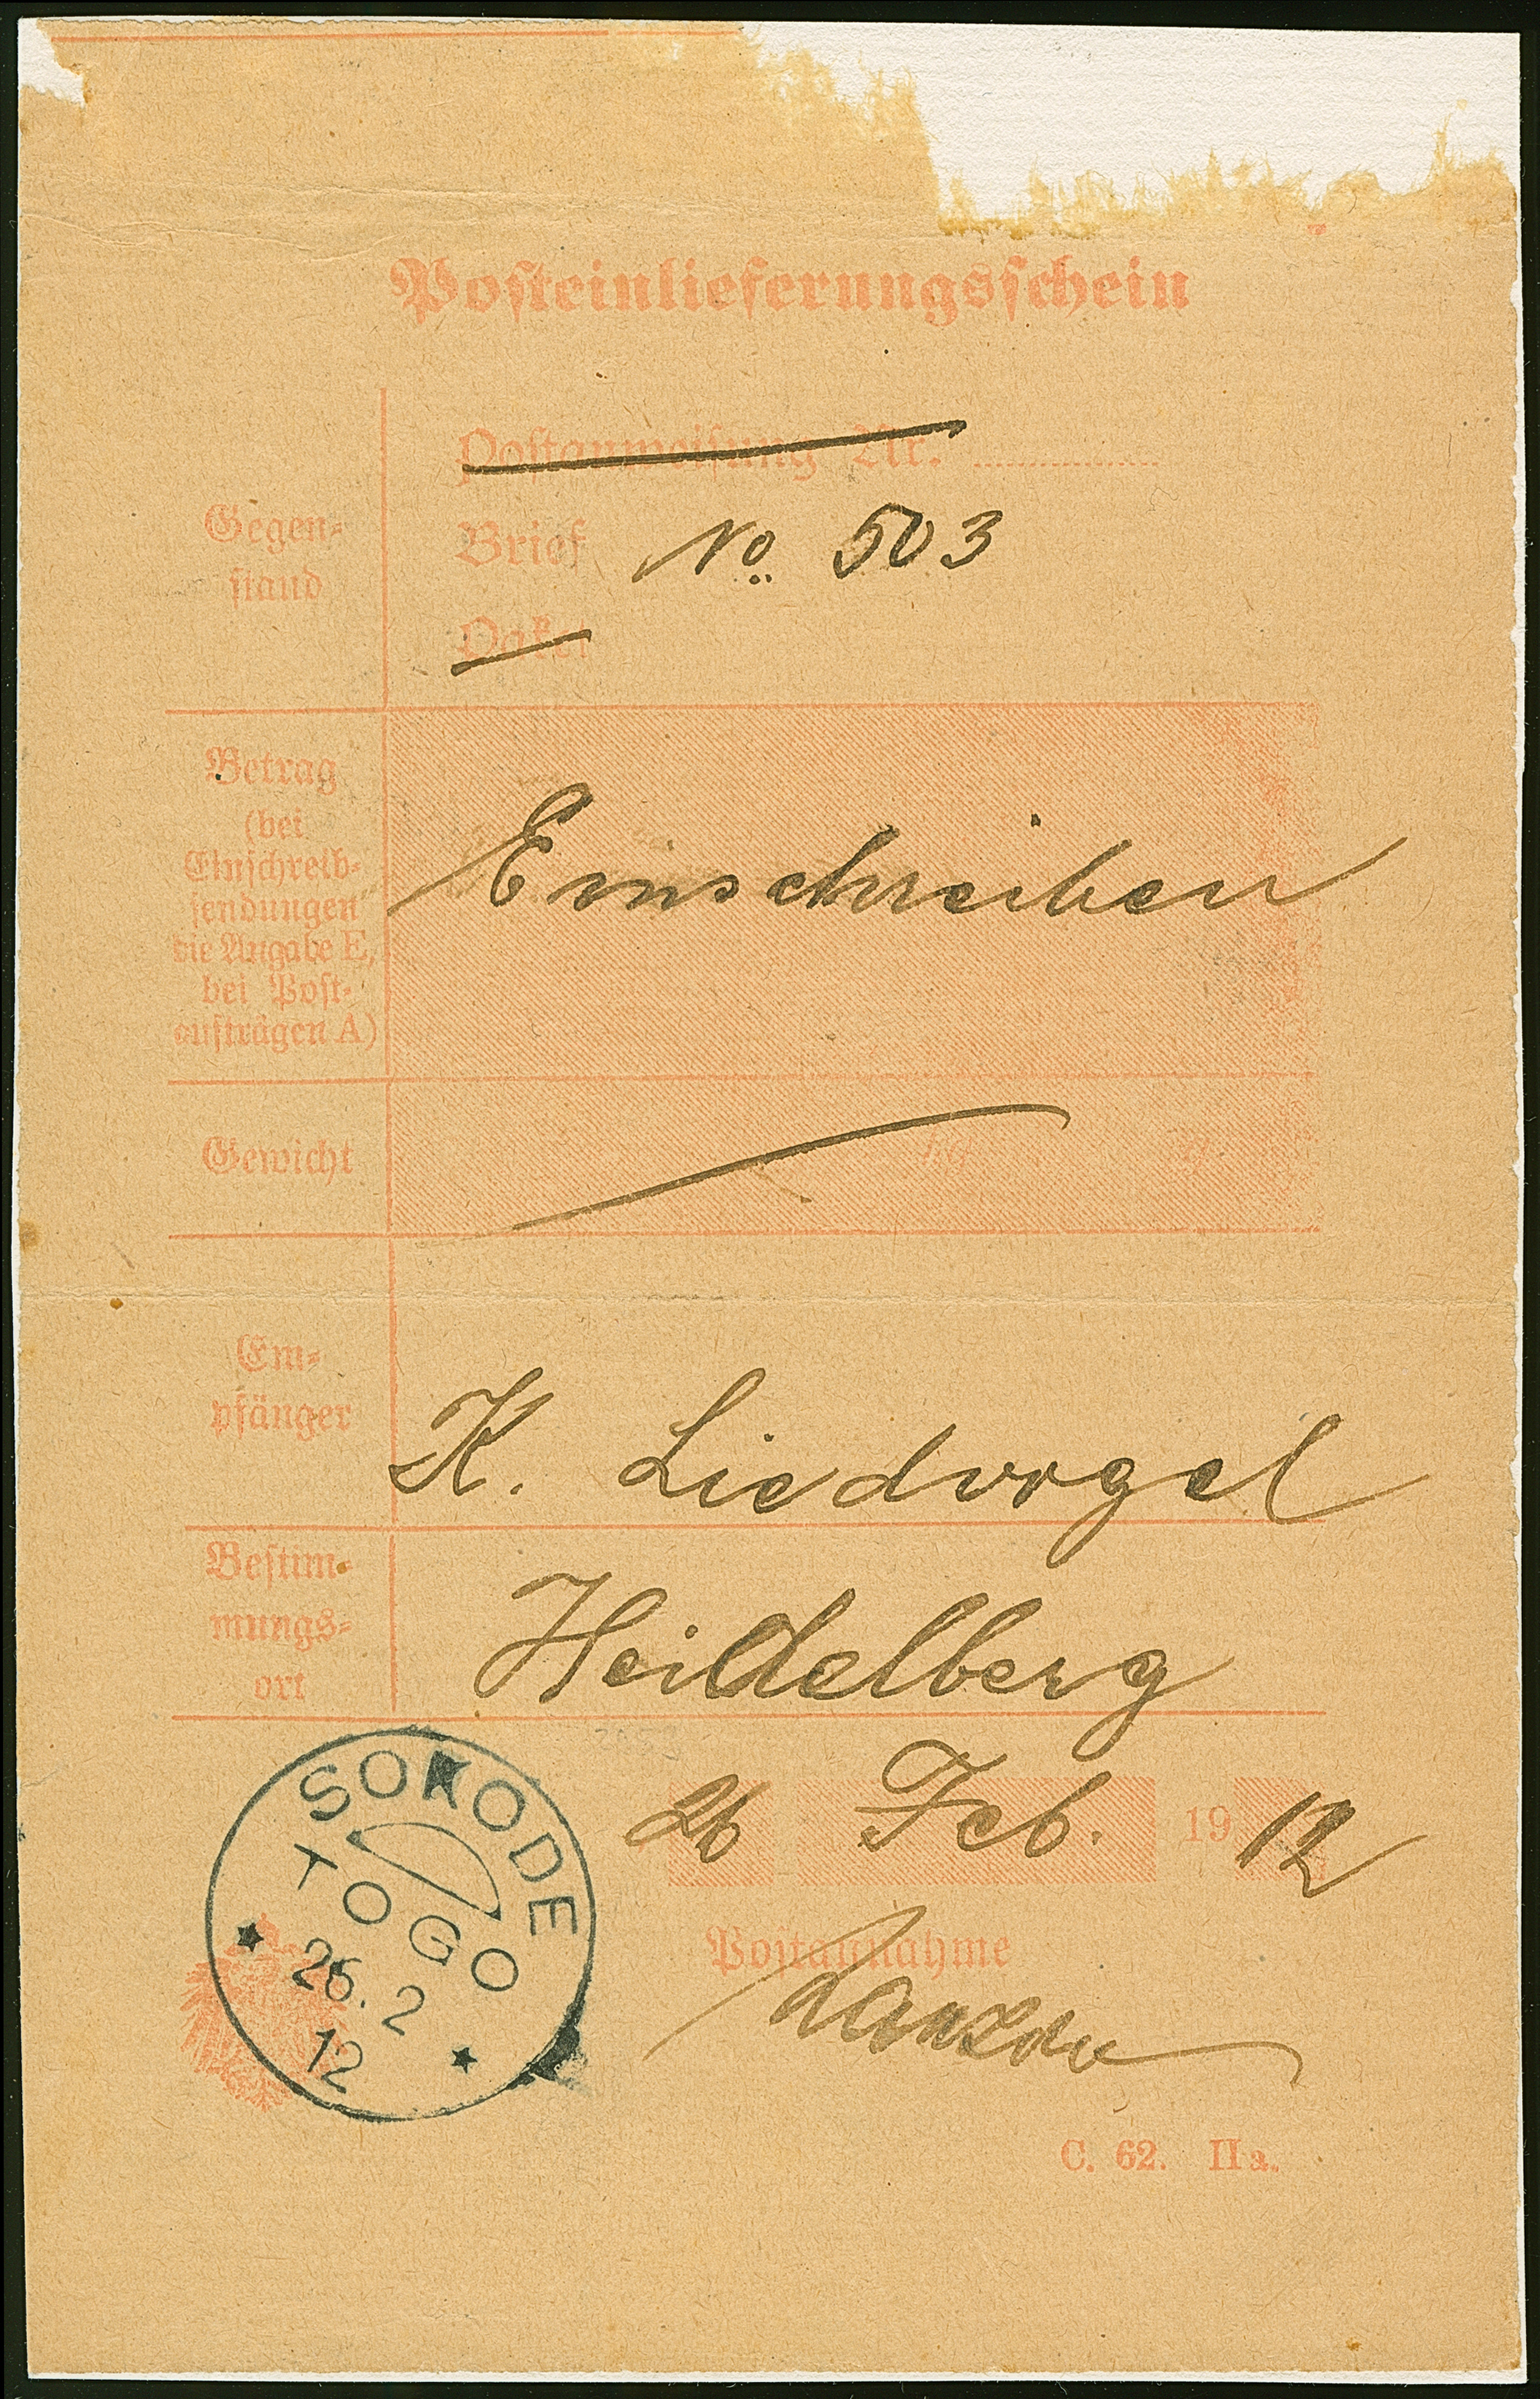 Posteinlieferungsschein
Gegen-
stand
Postanweisung Nr.
Brief No. 503
Paket
Betrag
(bei
Einschreib-
sendungen
die Angabe E,
bei Post-
aufträgen A)
Einschreiben
Gewicht
kg g
Em-
pfänger
K. Liedvogel
Bestim-
mungs-
ort
Heidelberg
26 Feb. 1912
Postannahme
SOKODE
TOGO
26.2
12
C. 62. IIa.